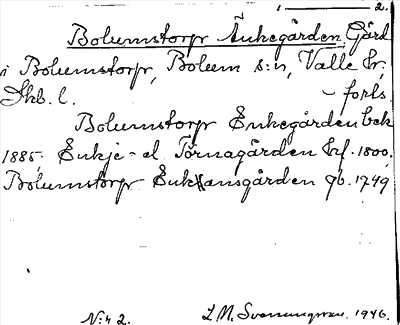 1 — 2.
Bolumstorps Änkegården, Gård
i Bolumstorp, Bolum s:n, Valle hr,
Skb. l. – forts
Bolumstorps Enkegården bek
1885. Enkje- el Törnagården hf. 1800.
Bolumstorps Enkansgården gb. 1749
N:r 2. L M. Svenungsson. 1946.